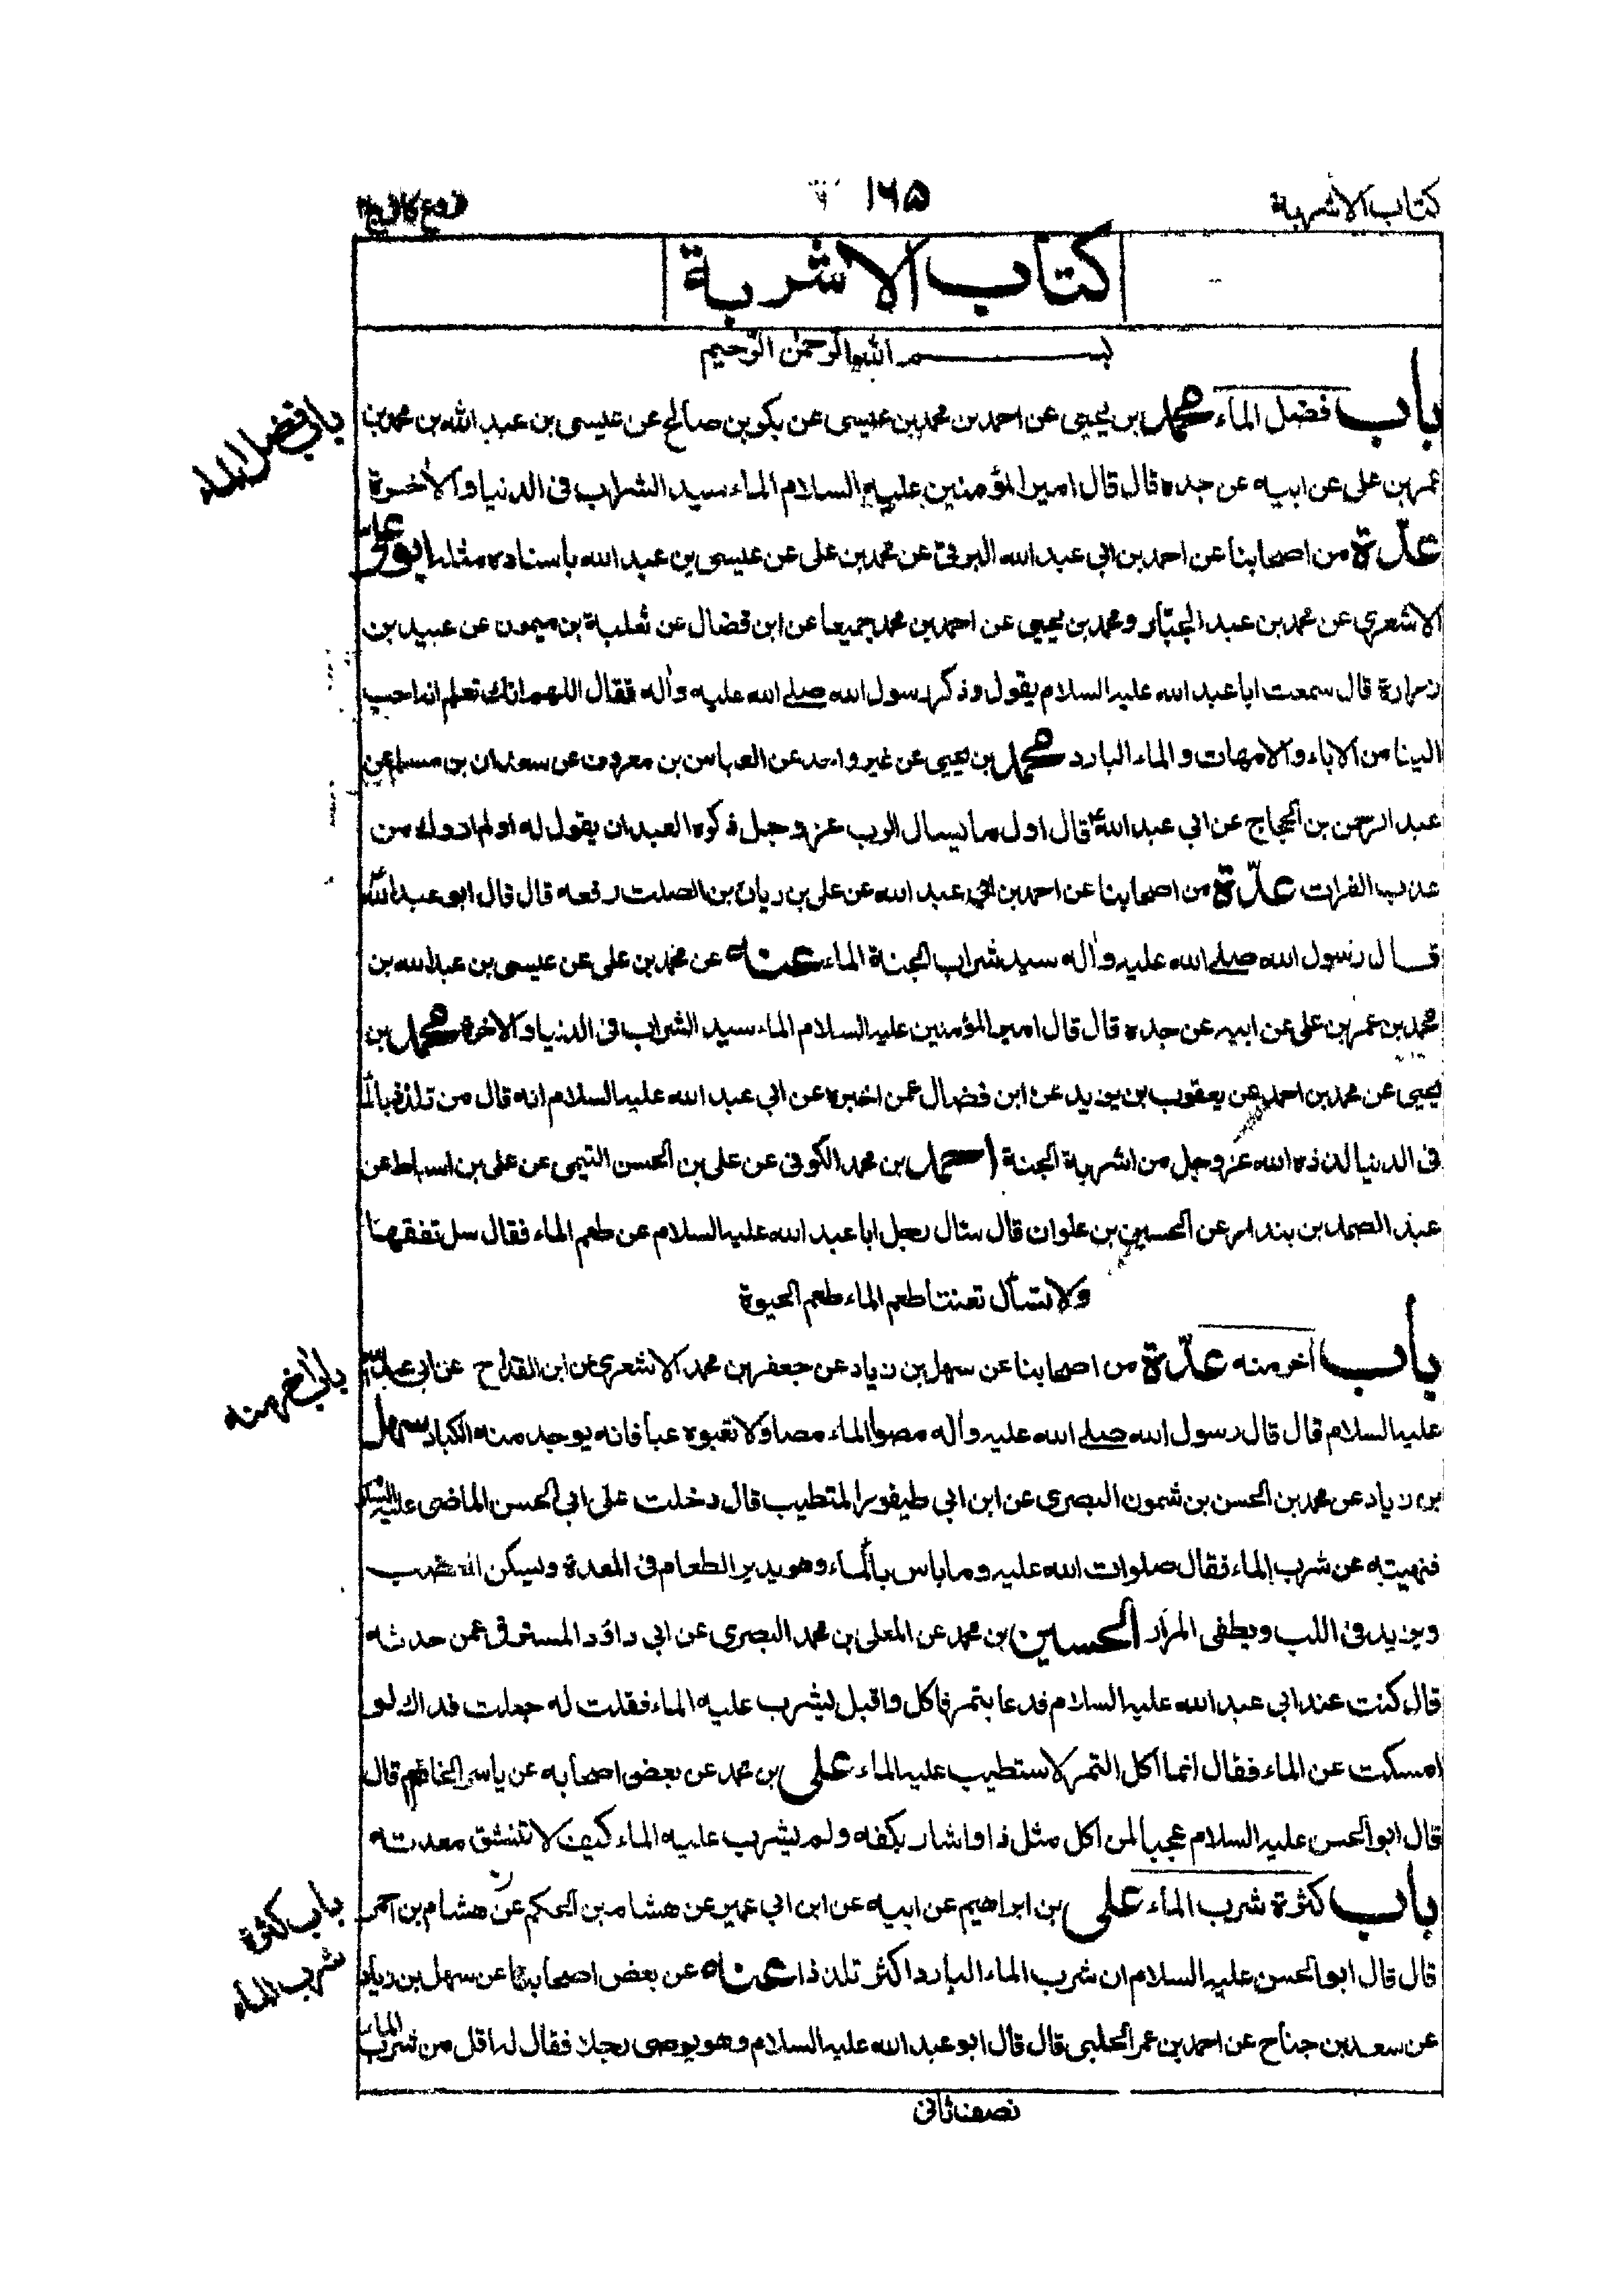 كتاب الاشربة
١٦٥
فروع كافى ج٢
كتاب الاشربة
بسم الله الرحمن الرحيم
باب فضل الماء محمد بن يحيى عن احمد بن محمد بن عيسى عن بكر بن صالح عن عيسى بن عبد الله بن محمد بن
باب فضل الماء
عمر بن على عن ابيه عن جده قال قال امير المؤمنين عليه السلام الماء سيد الشراب فى الدنيا والاخرة
عدّة من اصحابنا عن احمد بن ابي عبد الله البرقى عن محمد بن على عن عيسى بن عبد الله باسناده مثله ابو على
الاشعرى عن محمد بن عبد الجبّار ومحمد بن يحيى عن احمد بن محمد جميعا عن ابن فضال عن ثعلبة بن ميمون عن عبيد بن
زرارة قال سمعت ابا عبد الله عليه السلام يقول وذكر رسول الله صلى الله عليه واله فقال اللهم انك تعلم انه احب
الينا من الاباء والامهات والماء البارد محمد بن يحيى عن غير واحد عن العباس بن معروف عن سعدان بن مسلم عن
عبد الرحمن بن الحجاج عن ابي عبد الله ع قال اول ما يسال الرب عز وجل ذكره العبد ان يقول له اولم اروك من
عذب الفرات عدّة من اصحابنا عن احمد بن ابي عبد الله عن على بن ريان بن الصلت رفعه قال قال ابو عبد الله
قال رسول الله صلى الله عليه واله سيد شراب الجنة الماء عنه عن محمد بن على عن عيسى بن عبد الله بن
محمد بن عمر بن على عن ابيه عن جده قال قال امير المؤمنين عليه السلام الماء سيد الشراب فى الدنيا والاخرة محمد بن
يحيى عن محمد بن احمد عن يعقوب بن يزيد عن ابن فضال عمن اخبره عن ابي عبد الله عليه السلام انه قال من تلذذ بالما
فى الدنيا لذذه الله عز وجل من اشربة الجنة احمد بن محمد الكوفى عن على بن الحسن التيمى عن على بن اسباط عن
عبد الصمد بن بندار عن الحسين بن علوان قال سئال رجل ابا عبد الله عليه السلام عن طعم الماء فقال سل تفقها
ولا تسأل تعنتا طعم الماء طعم الحيوة
باب اخر منه عدّة من اصحابنا عن سهل بن زياد عن جعفر بن محمد الاشعرى عن ابن القداح عن ابي عبد الله
باب اخر منه
عليه السلام قال قال رسول الله صلى الله عليه واله مصوا الماء مصا ولا تعبوه عبا فانه يوجد منه الكباد سهل
بن زياد عن محمد بن الحسن بن شمون البصرى عن ابن ابي طيفور المتطيب قال دخلت على ابي الحسن الماضى عليه السلام
فنهيته عن شرب الماء فقال صلوات الله عليه وما باس بالماء وهو يدير الطعام فى المعدة ويسكن الغضب
ويزيد فى اللب ويطفى المرار الحسين بن محمد عن المعلى بن محمد البصرى عن ابي داؤد المسترق عمن حدثه
قال كنت عند ابي عبد الله عليه السلام فدعا بتمر فاكل واقبل يشرب عليه الماء فقلت له جعلت فداك لو
امسكت عن الماء فقال انما آكل التمر لاستطيب عليه الماء على بن محمد عن بعض اصحابه عن ياسر الخادم قال
قال ابو الحسن عليه السلام عجبا لمن اكل مثل ذا واشار بكفه ولم يشرب عليه الماء كيف لا تنشق معدته
باب كثرة شرب الماء على بن ابراهيم عن ابيه عن ابن ابي عمير عن هشام بن الحكم عن هشام بن احمر
باب كثرة
شرب الماء
قال قال ابو الحسن عليه السلام ان شرب الماء البارد اكثر تلذذا عنه عن بعض اصحابنا عن سهل بن زياد
عن سعد بن جناح عن احمد بن عمر الحلبى قال قال ابو عبد الله عليه السلام وهو يوصى رجلا فقال له اقل من شرب الماء
نصف ثانى